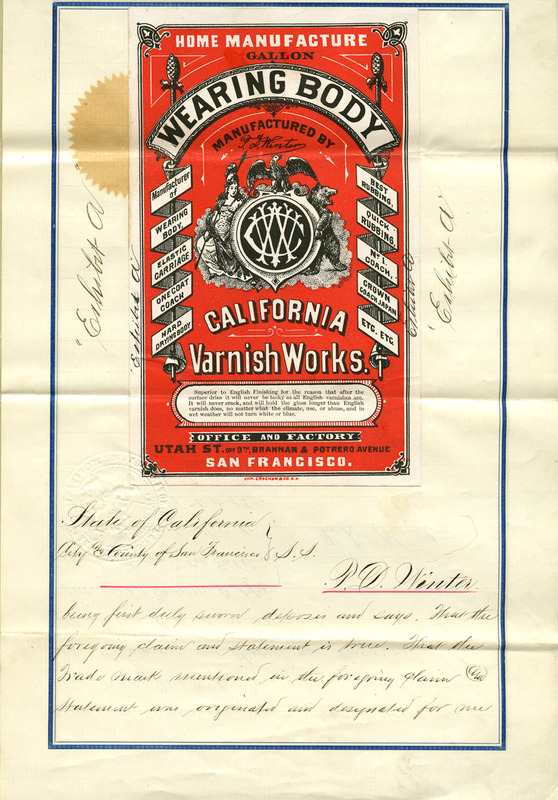 HOME MANUFACTURE
GALLON
WEARING BODY
MANUFACTURED BY
P. D. Winter
Manufacturer
of
WEARING
BODY,
ELASTIC
CARRIAGE
ONE COAT
COACH
HARD
DRYING BODY
BEST
RUBBING,
QUICK
RUBBING,
No. 1
COACH,
CROWN
COACH JAPAN
ETC. ETC.
CVW
CALIFORNIA
Varnish Works.
Superior to English Finishing for the reason that after the
surface dries it will never be tacky as all English varnishes are.
It will never crack, and will hold the gloss longer than English
varnish does, no matter what the climate, use, or abuse, and in
wet weather will not turn white or blue.
OFFICE AND FACTORY
UTAH ST. OFF 9TH, BRANNAN & POTRERO AVENUE
SAN FRANCISCO.
LITH. CROCKER & CO. S.F.
"Exhibit A"
Exhibit A
Exhibit A
"Exhibit A"
State of California
City & County of San Francisco } S.S.
P. D. Winter
being first duly sworn deposes and says. That the
foregoing claim and statement is true. That the
Trade mark mentioned in the foregoing Claim and
Statement was originated and designated for me